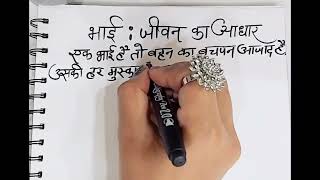 भाई : जीवन का आधार
एक भाई है तो बहन का बचपन आजाद है,
उसकी हर मुस्का